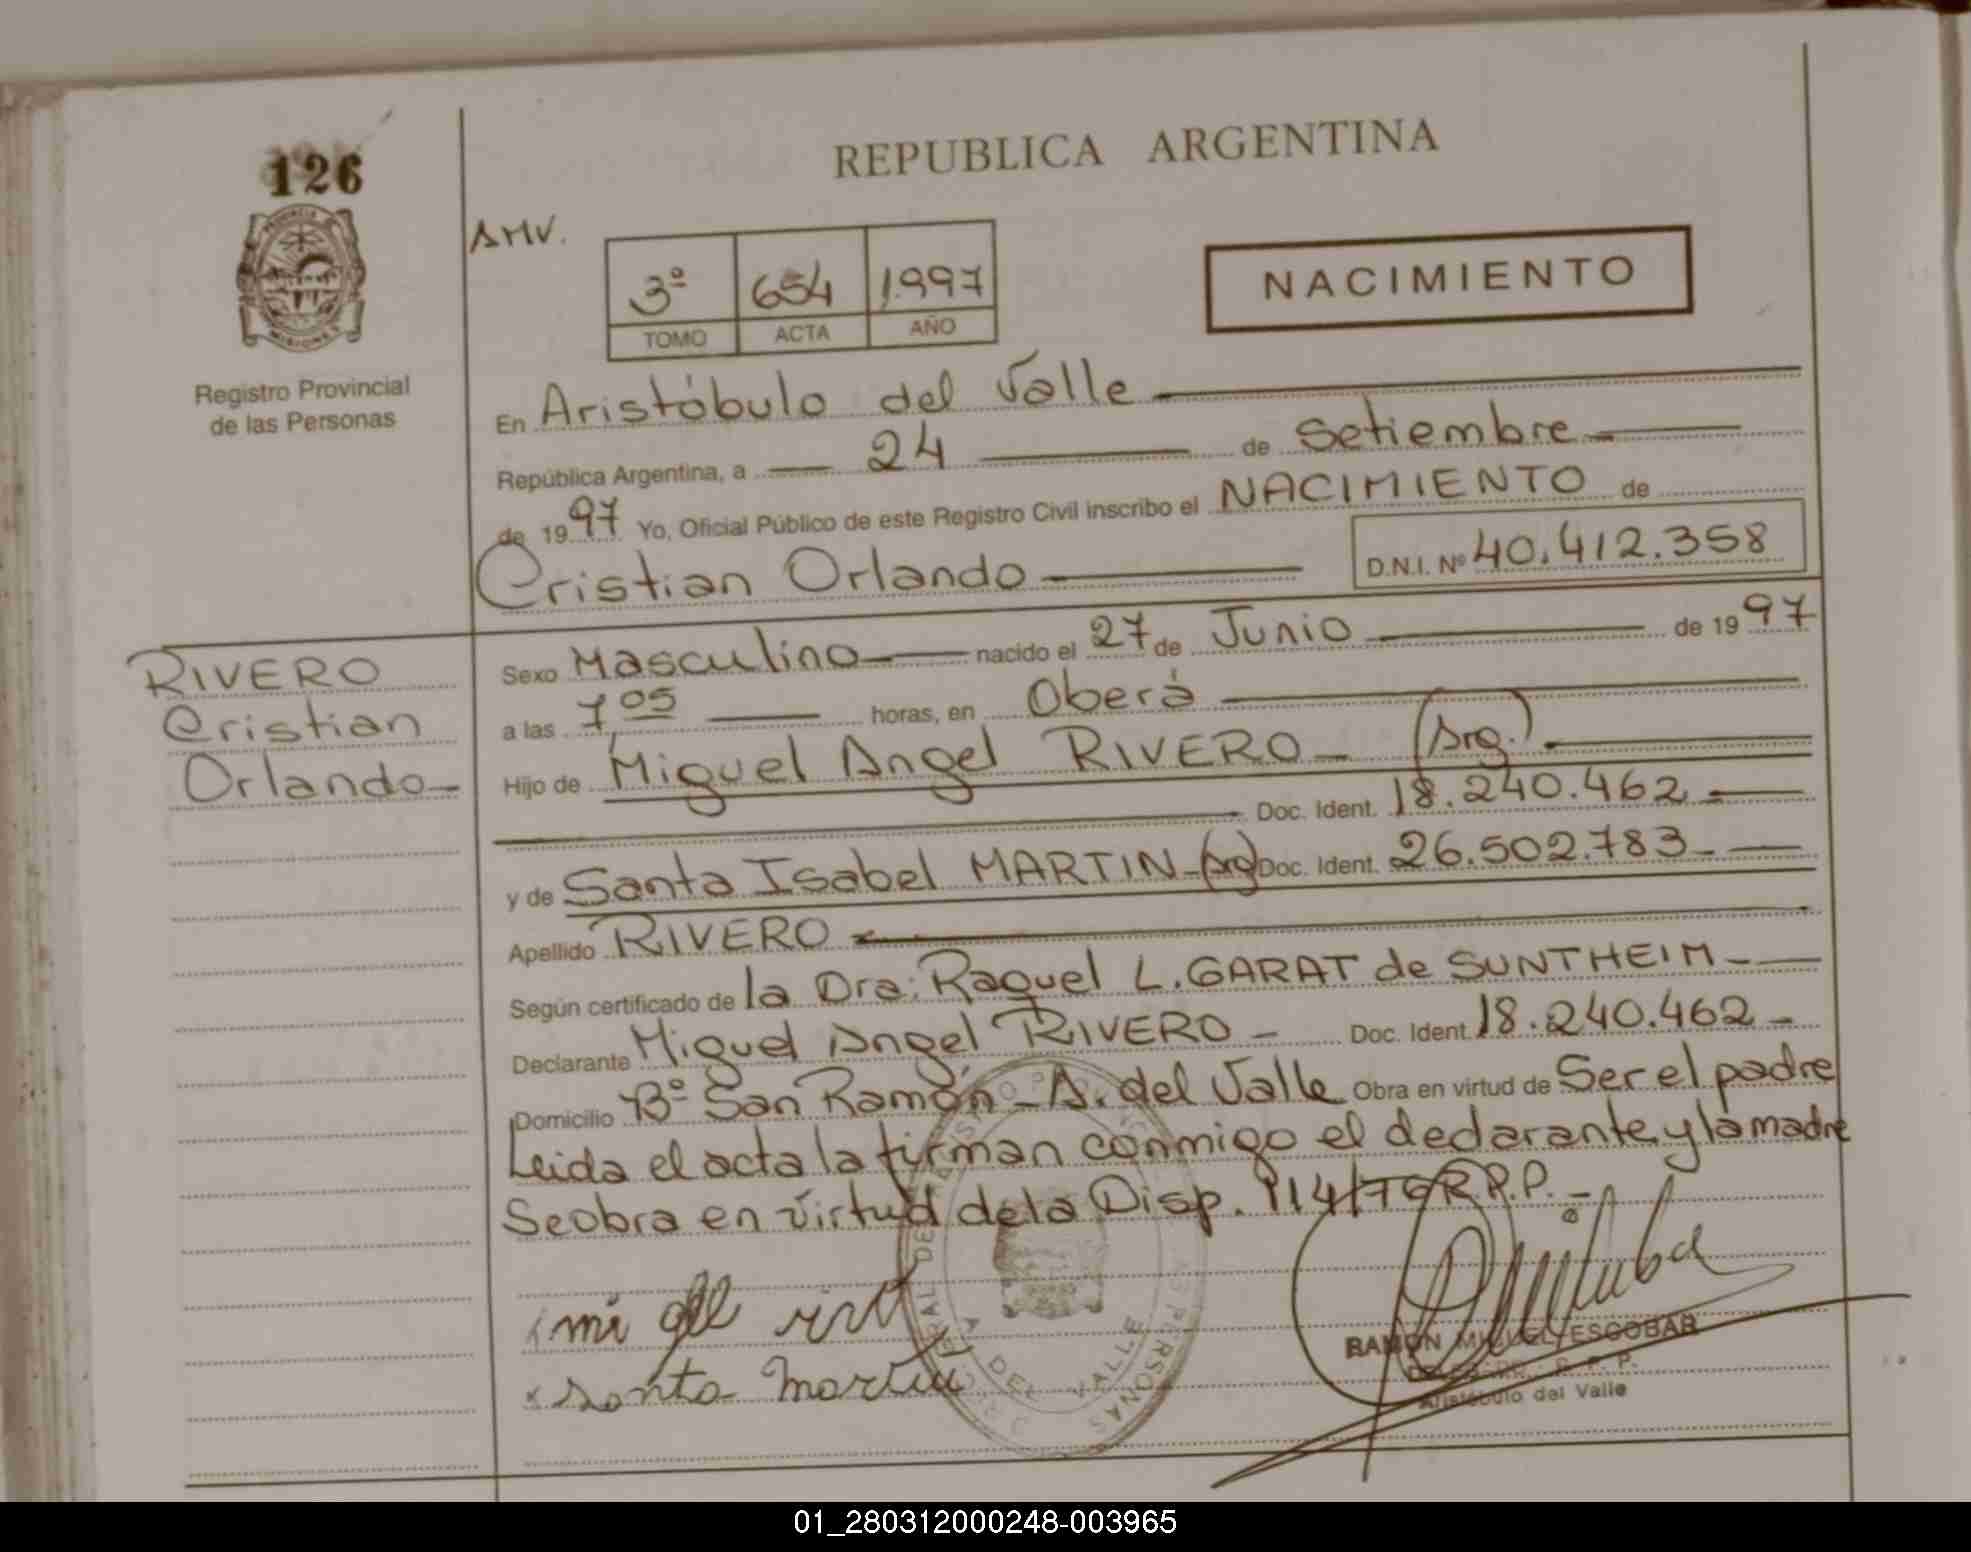 126
PROVINCIA DE
MISIONES
Registro Provincial
de las Personas
REPUBLICA ARGENTINA
AMV.
3º 654 1.997
TOMO ACTA AÑO
NACIMIENTO
En Aristóbulo del Valle
República Argentina, a 24 de Setiembre
de 1997 Yo, Oficial Público de este Registro Civil inscribo el NACIMIENTO de
Cristian Orlando D.N.I. Nº 40.412.358
RIVERO
Cristian
Orlando
Sexo Masculino nacido el 27 de Junio de 1997
a las 7 05 horas, en Oberá
Hijo de Miguel Angel RIVERO (Arg.)
Doc. Ident. 18.240.462
y de Santa Isabel MARTIN (Arg) Doc. Ident. 26.502.783
Apellido RIVERO
Según certificado de la Dra: Raquel L. GARAT de SUNTHEIM
Declarante Miguel Angel RIVERO Doc. Ident. 18.240.462
Domicilio Bº San Ramón - A. del Valle Obra en virtud de Ser el padre
Leida el acta la firman conmigo el declarante y la madre
Se obra en virtud de la Disp. 114/76 R.P.P.
santa Martin
RAMON MIGUEL ESCOBAR
R. P. P.
Aristóbulo del Valle
DEL VALLE
PERSONAS
01_280312000248-003965